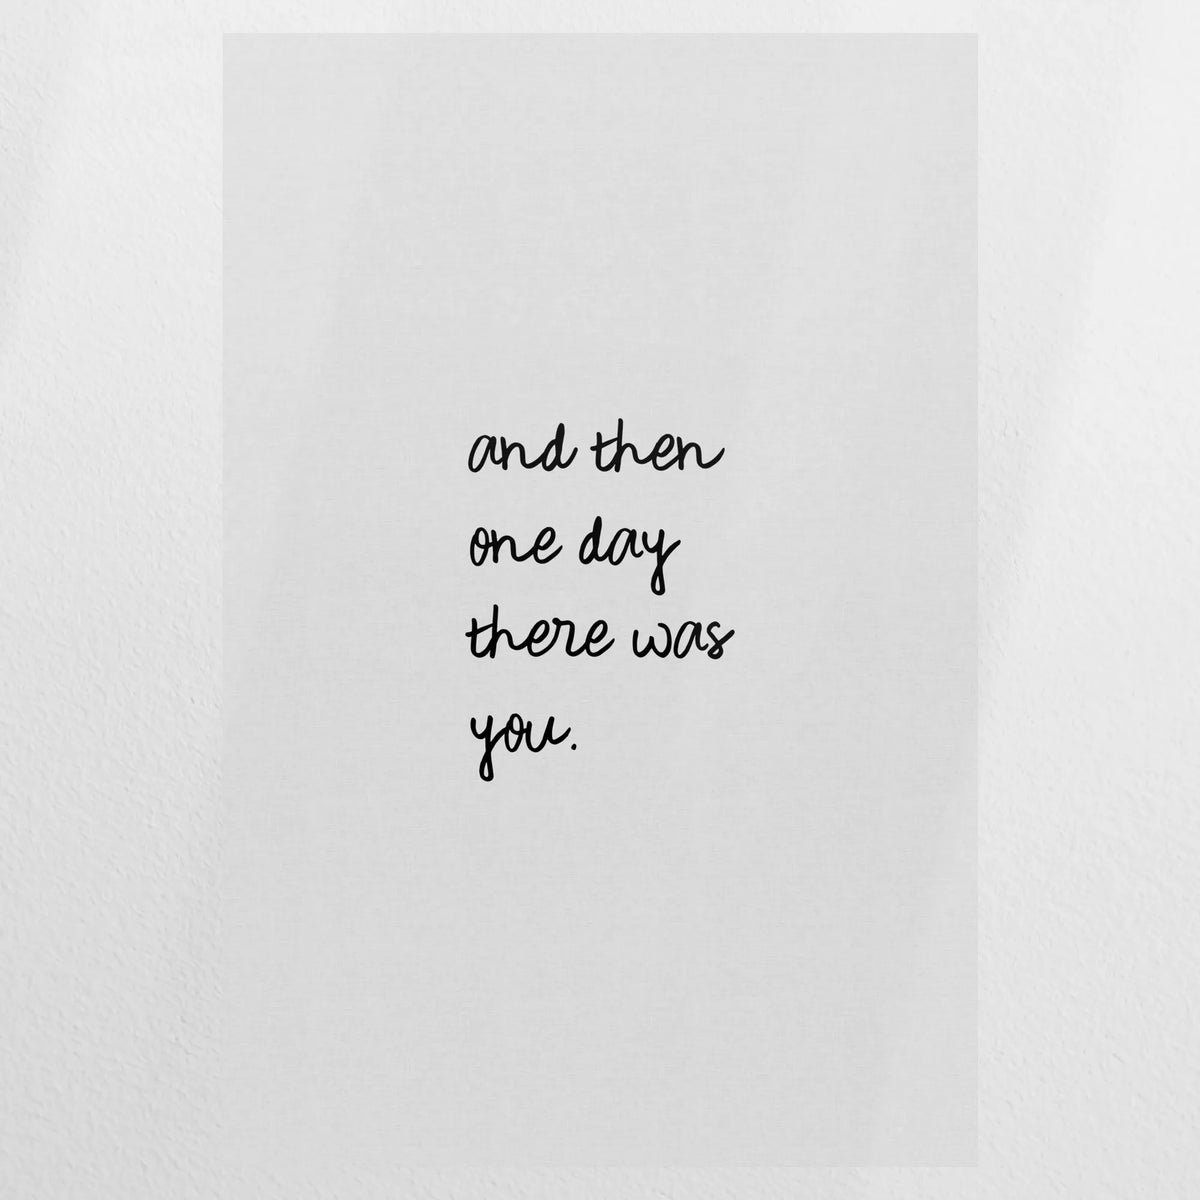 and then
one day
there was
you.